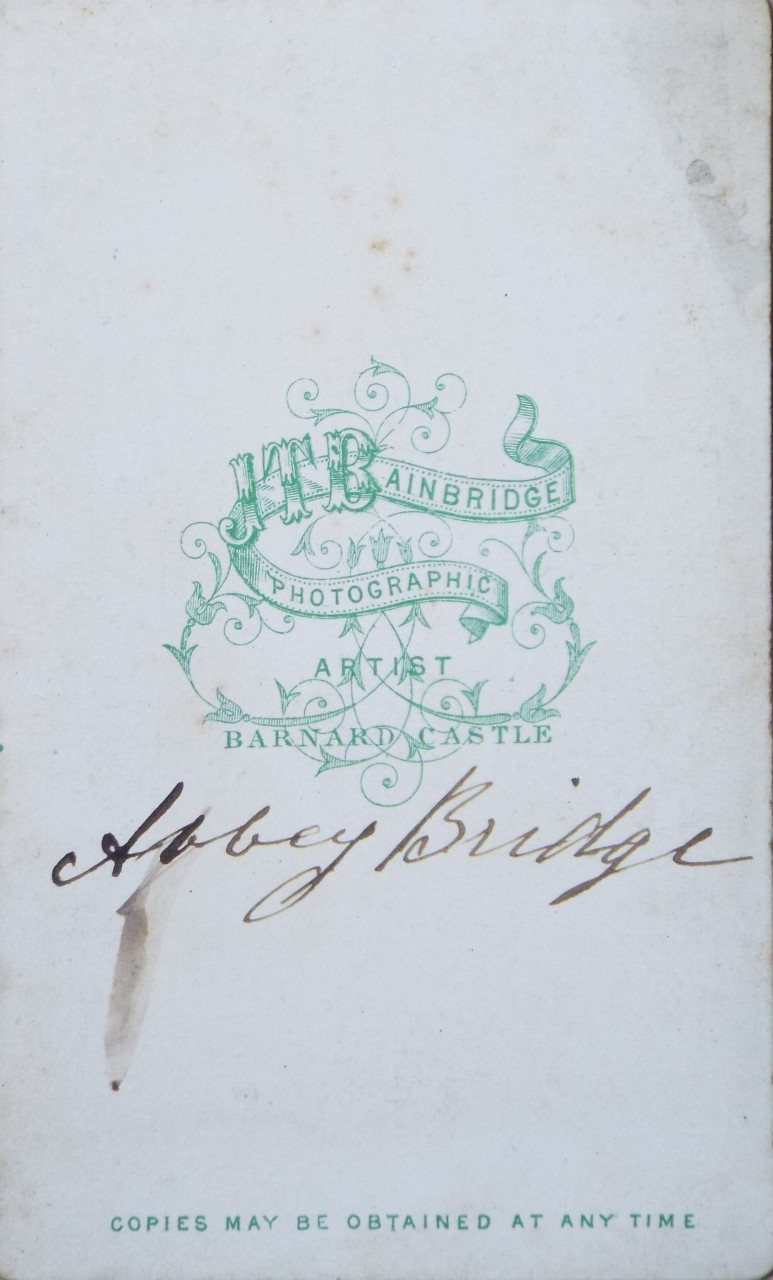 JTBAINBRIDGE
PHOTOGRAPHIC
ARTIST
BARNARD CASTLE
Abbey Bridge
COPIES MAY BE OBTAINED AT ANY TIME